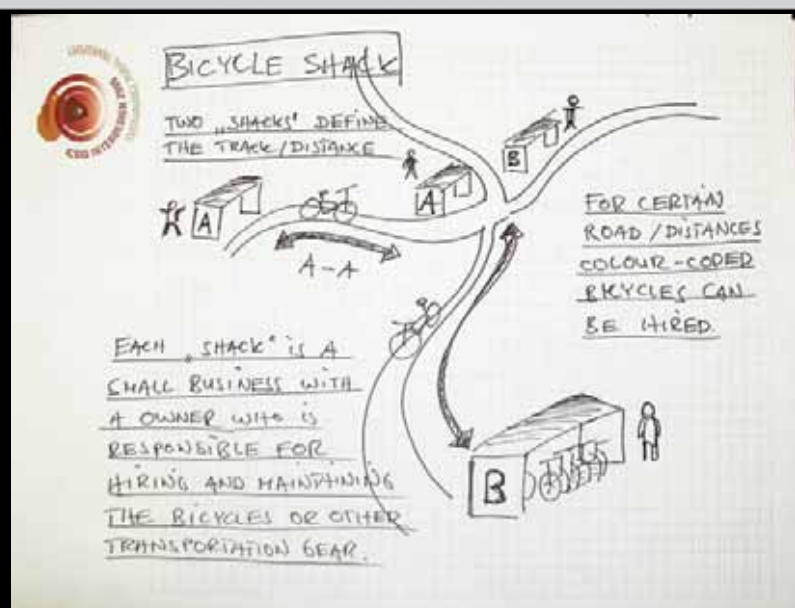 BICYCLE SHACK
TWO „SHACKS" DEFINE
THE TRACK/DISTANCE
A
A
B
A-A
FOR CERTAIN
ROAD/DISTANCES
COLOUR-CODED
BICYCLES CAN
BE HIRED.
EACH „SHACK" IS A
SMALL BUSINESS WITH
A OWNER WHO IS
RESPONSIBLE FOR
HIRING AND MAINTAINING
THE BICYCLES OR OTHER
TRANSPORTATION GEAR.
B